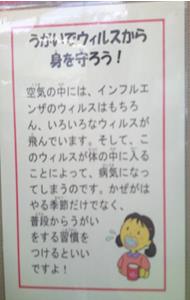 うがいでウィルスから
身を守ろう！
空気の中には、インフルエ
ンザのウィルスはもちろ
ん、いろいろなウィルスが
飛んでいます。そして、こ
のウィルスが体の中に入る
ことによって、病気になっ
てしまうのです。かぜがは
やる季節だけでなく、
普段からうがい
をする習慣を
つけるといい
ですよ！